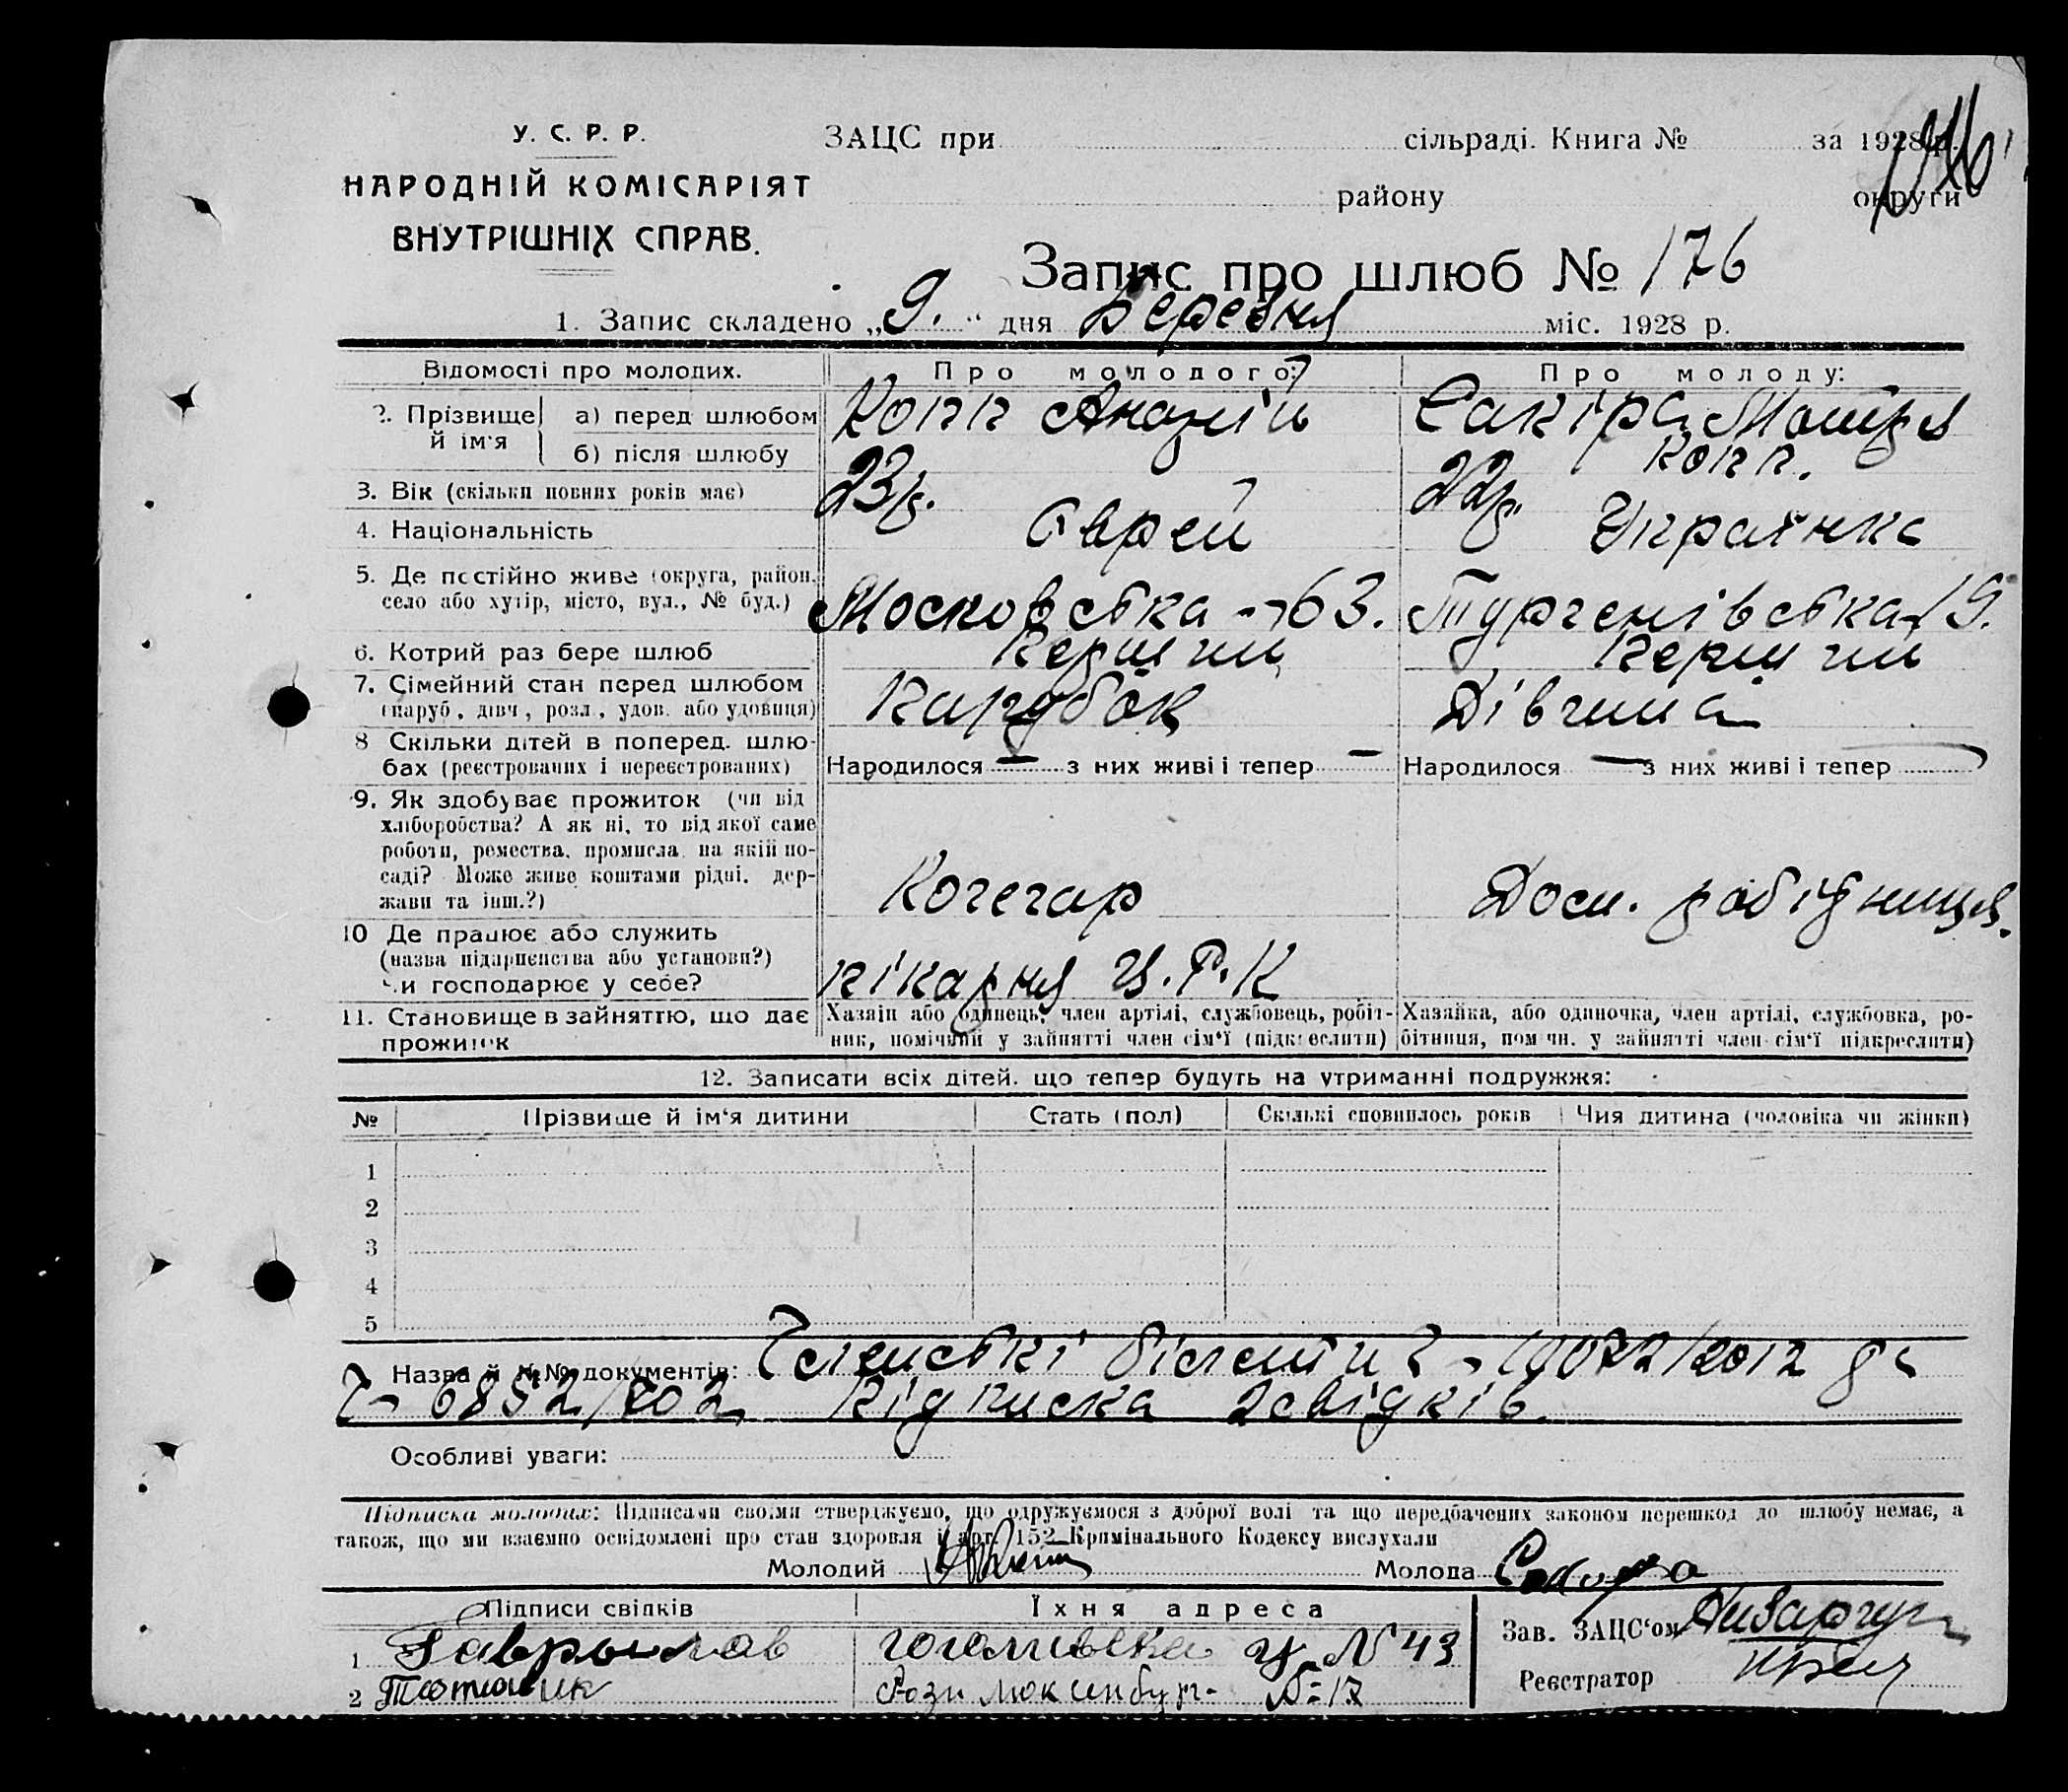 У. С. Р. Р.
НАРОДНІЙ КОМІСАРІЯТ
ВНУТРІШНІХ СПРАВ.
ЗАЦС при сільраді. Книга № за 1928 р.
району округи
Запис про шлюб № 176
1. Запис складено „9.“ дня Березня міс. 1928 р.
Відомості про молодих. Про молодого: Про молоду:
2. Прізвище й ім'я а) перед шлюбом Копп Ананій Сакіра Мотря
б) після шлюбу Копп.
3. Вік (скільки повних років має) 23 р. 22 р.
4. Національність Єврей Українка
5. Де постійно живе (округа, район, село або хутір, місто, вул., № буд.) Московська - 63. Тургенівська
6. Котрий раз бере шлюб Перший Перший
7. Сімейний стан перед шлюбом (паруб., дівч., розл., удов. або удовиця) Парубок Дівчина
8 Скільки дітей в поперед. шлюбах (реєстрованих і нереєстрованих) Народилося — з них живі і тепер — Народилося — з них живі і тепер
9. Як здобуває прожиток (чи від хліборобства? А як ні, то від якої саме роботи, ремества, промисла, на якій посаді? Може живе коштами рідні, держави та інш.?) Кочегар Дом. робітниця.
10 Де працює або служить (назва підприємства або установи?) чи господарює у себе? пікарня Ц.Р.К
11. Становище в зайняттю, що дає прожиток Хазяїн або одинець, член артілі, службовець, робітник, помічний у зайнятті член сім'ї (підкреслити) Хазяйка, або одиночка, член артілі, службовка, робітниця, помічн. у зайнятті член сім'ї підкреслити)
12. Записати всіх дітей, що тепер будуть на утриманні подружжя:
№ Прізвище й ім'я дитини Стать (пол) Скількі сповнилось років Чия дитина (чоловіка чи жінки)
1
2
3
4
5
Назва й №№ документів: Членські білети
6852/202 Підписка 2 свідків.
Особливі уваги:
Підписка молодих: Підписами своїми стверджуємо, що одружуємося з доброї волі та що передбачених законом перешкод до шлюбу немає, а
також, що ми взаємно освідомлені про стан здоровля і арт. 152 Кримінального Кодексу вислухали
Молодий Молода Сакира
Підписи свідків Їхня адреса
1 Гаврылов гоголивська N 43
2 Рози Люксенбург № 17
Зав. ЗАЦС'ом
Реєстратор